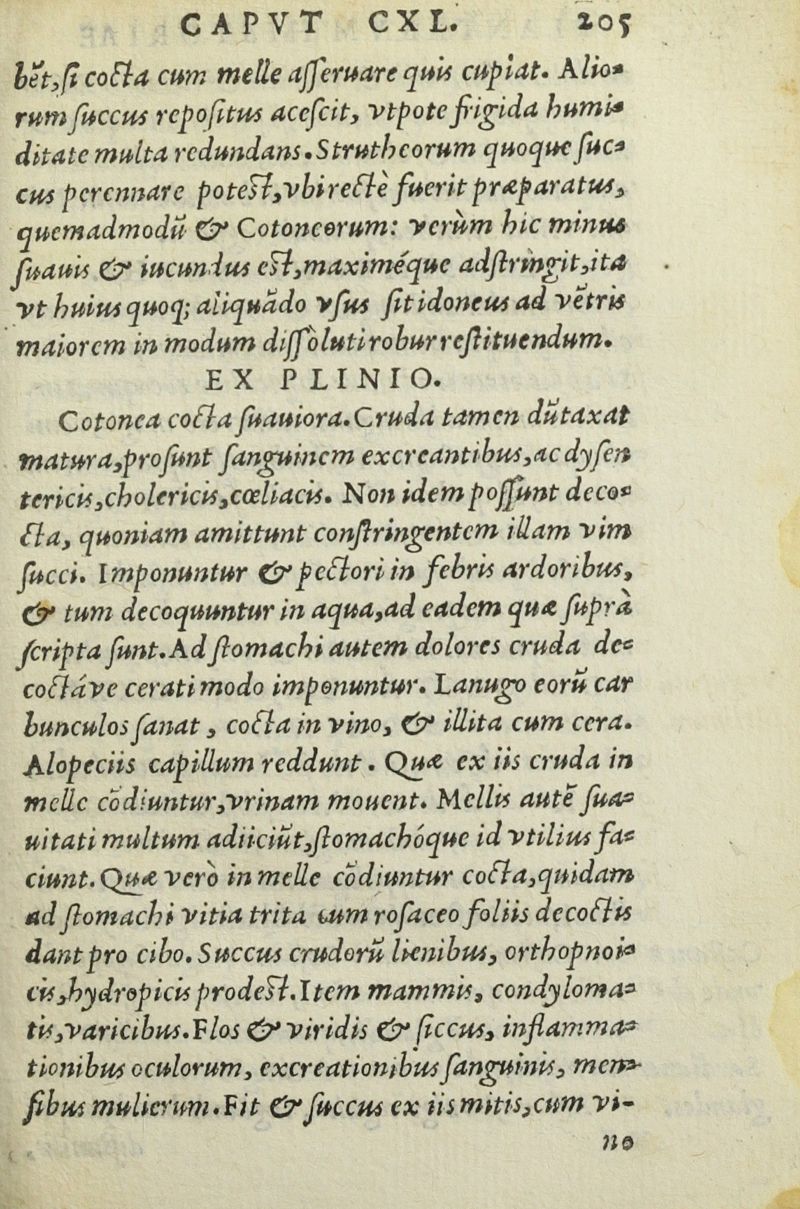 CAPVT CXL. 205
bẽt, ſi cocta cum melle aſſeruare quis cupiat. Alio-
rum ſuccus repoſitus aceſcit, vtpote frigida humi-
ditate multa redundans. Strutheorum quoque ſuc-
cus perennare poteſt, vbi rectè fuerit præparatus,
quemadmodũ & Cotoneorum: verùm hic minus
ſuauis & iucundus eſt, maximéque adſtringit, ita
vt huius quoq; aliquãdo vſus ſit idoneus ad vẽtris
maiorem in modum diſſoluti robur reſtituendum.
EX PLINIO.
Cotonea cocta ſuauiora. Cruda tamen dũtaxat
matura, proſunt ſanguinem excreantibus, ac dyſen
tericis, cholericis, cœliacis. Non idem poſſunt deco-
cta, quoniam amittunt conſtringentem illam vim
ſucci. Imponuntur & pectori in febris ardoribus,
& tum decoquuntur in aqua, ad eadem quæ ſuprà
ſcripta ſunt. Ad ſtomachi autem dolores cruda de-
coctáve cerati modo imponuntur. Lanugo eorũ car
bunculos ſanat, cocta in vino, & illita cum cera.
Alopeciis capillum reddunt. Quæ ex iis cruda in
melle cõdiuntur, vrinam mouent. Mellis autẽ ſua-
uitati multum adiiciũt, ſtomachóque id vtilius fa-
ciunt. Quæ verò in melle cõdiuntur cocta, quidam
ad ſtomachi vitia trita cum roſaceo foliis decoctis
dant pro cibo. Succus crudorũ lienibus, orthopnoi-
cis, hydropicis prodeſt. Item mammis, condyloma-
tis, varicibus. Flos & viridis & ſiccus, inflamma-
tionibus oculorum, excreationibus ſanguinis, men-
ſibus mulierum. Fit & ſuccus ex iis mitis, cum vi-
no